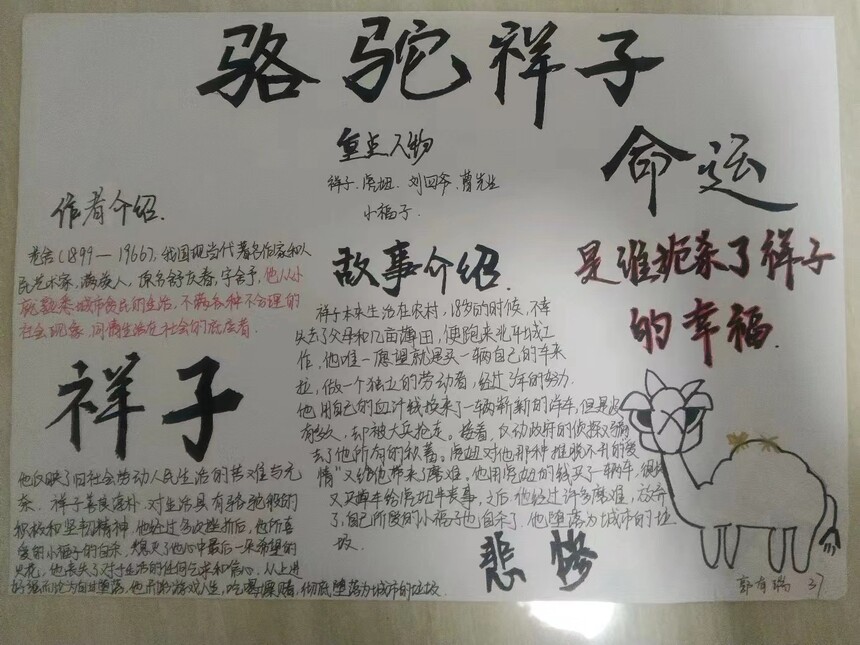 骆驼祥子
重点人物
祥子、虎妞、刘四爷、曹先生
小福子
命运
是谁扼杀了祥子
的幸福
作者介绍
老舍(1899—1966),我国现当代著名作家和人
民艺术家,满族人,原名舒庆春,字舍予,他从小
就熟悉城市贫民的生活,不满各种不合理的
社会现象,同情生活在社会的底层者.
故事介绍
祥子本来生活在农村,18岁的时候,不幸
失去了父母和几亩薄田,便跑来北平城工
作,他唯一愿望就是买一辆自己的车来
拉,做一个独立的劳动者,经过3年的努力.
他用自己的血汗钱换来了一辆崭新的洋车,但是没
有多久,却被大兵抢走。接着,反动政府的侦探又
去了他所有的积蓄。虎妞对他那种推脱不开的"爱
情"又给他带来了磨难,他用虎妞的钱买了一辆车,很快
又卖车给虎妞丧事,之后他经过许多磨难,
了,自己所爱的小福子也自杀了,他堕落为城市的垃
圾
祥子
他反映了旧社会劳动人民生活的苦难与无
奈. 祥子善良淳朴,对生活具有骆驼般的
积极和坚韧精神,他经过多次挫折后,他所喜
爱的小福子的自杀,熄灭了他心中最后一朵希望的
火花,他丧失了对于生活的任何乞求和信心,从上进
自甘堕落,他开始游戏人生,吃喝嫖赌,彻底堕落为城市的垃圾
悲惨
37